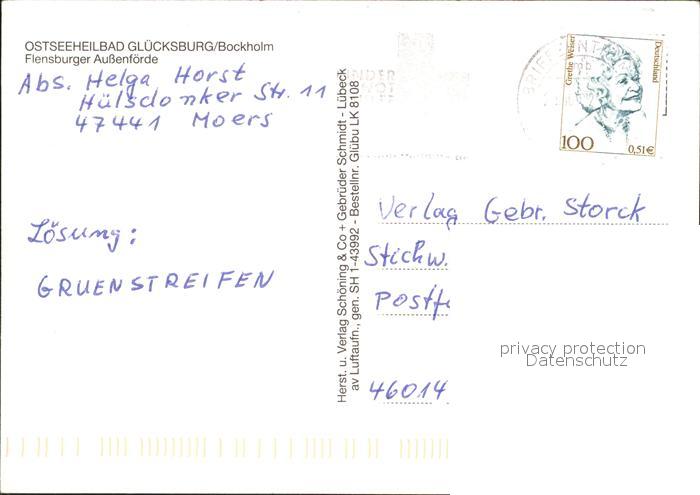 OSTSEEHEILBAD GLÜCKSBURG/Bockholm
Flensburger Außenförde
Abs. Helga Horst
Hülsdonker Str. 11
47441 Moers
Lösung:
GRUENSTREIFEN
Herst. u. Verlag Schöning & Co + Gebrüder Schmidt - Lübeck
av Luftaufn., gen. SH 1-43992 - Bestellnr. Glübu LK 8108
BRIEFZENT
Grethe Weiser
Deutschland
100
0,51€
Verlag Gebr. Storck
Stichw.
Postf
46014
privacy protection
Datenschutz